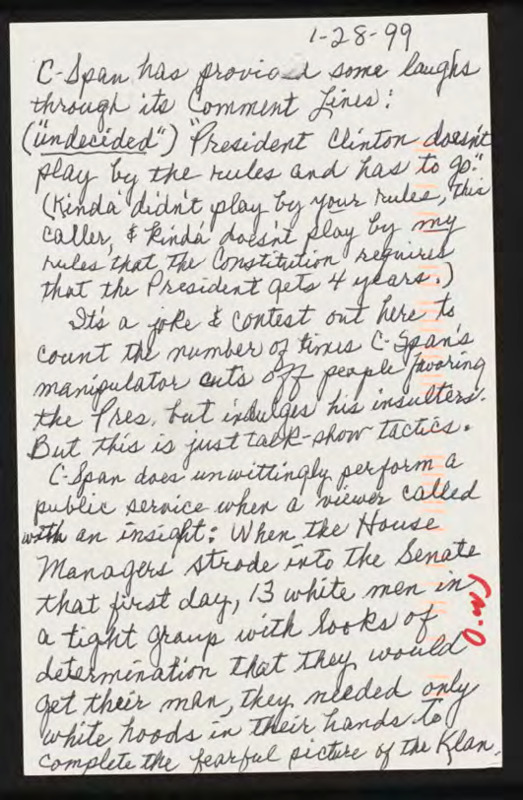 1-28-99
C-Span has provided some laughs
through its Comment Lines:
("undecided") "President Clinton doesn't
play by the rules and has to go."
(Kinda didn't play by your rules, this
caller, & kinda doesn't play by my
rules that the Constitution requires
that the President gets 4 years.)
It's a joke & contest out here to
count the number of times C-Span's
manipulator cuts off people favoring
the Pres. but indulges his insulters.
But this is just talk-show tactics.
C-Span does unwittingly perform a
public service when a viewer called
with an insight: When the House
Managers strode into the Senate
that first day, 13 white men in
a tight group with looks of
determination that they would
get their man, they needed only
white hoods in their hands to
complete the fearful picture of the Klan.